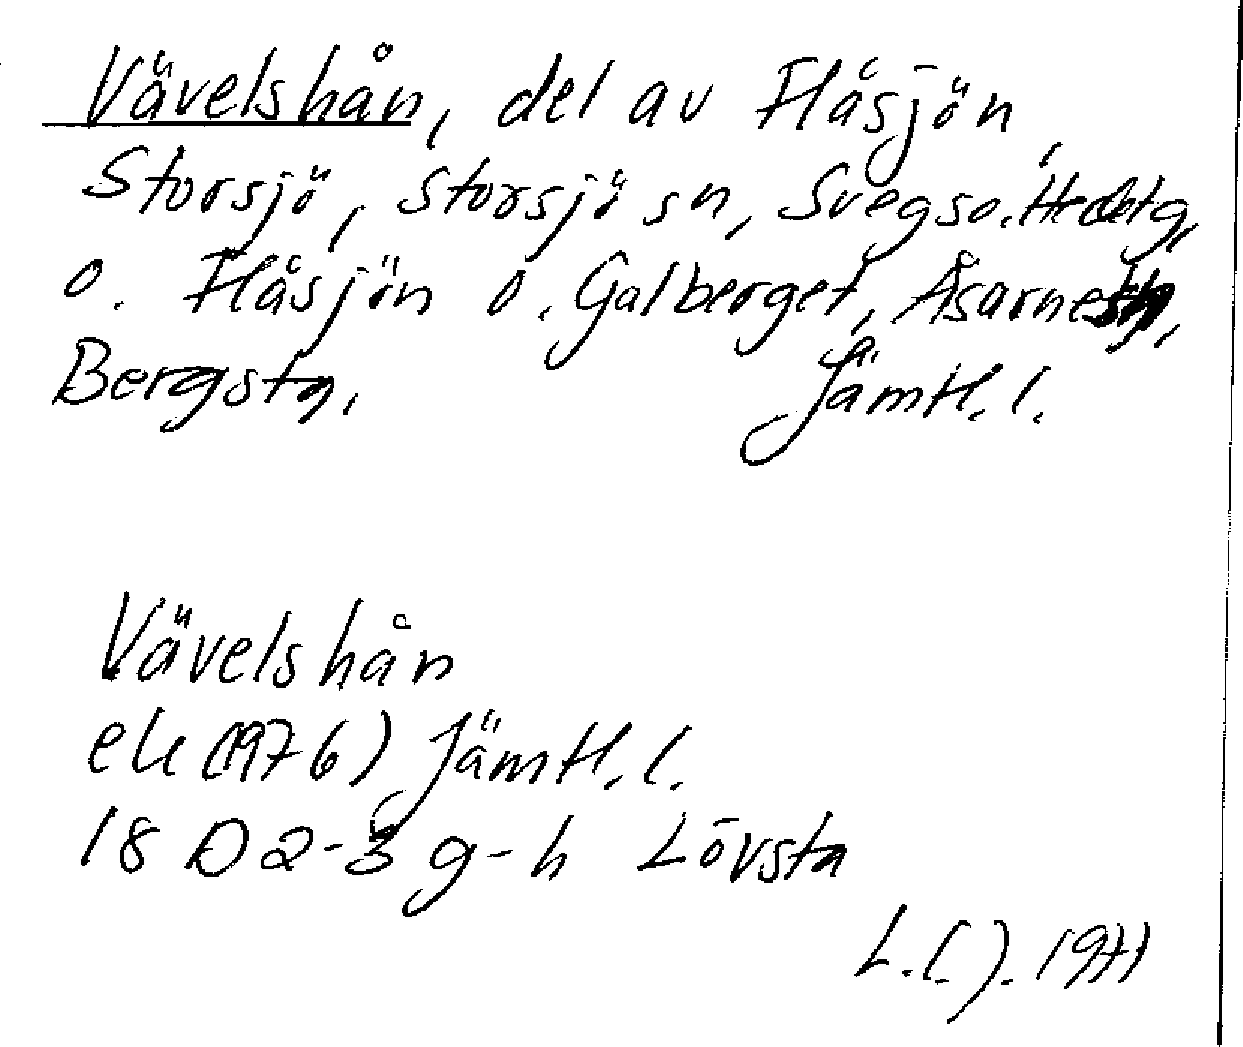 Vävelshån, del av Flåsjön,
Storsjö, Storsjö sn, Svegs o. Hede tg,
o. Flåsjön o. Galberget, Åsarne sn,
Bergs tg, Jämtl. l.
Vävelshån
ek (1976) Jämtl. l.
18 D 2-3 g-h Lövsta